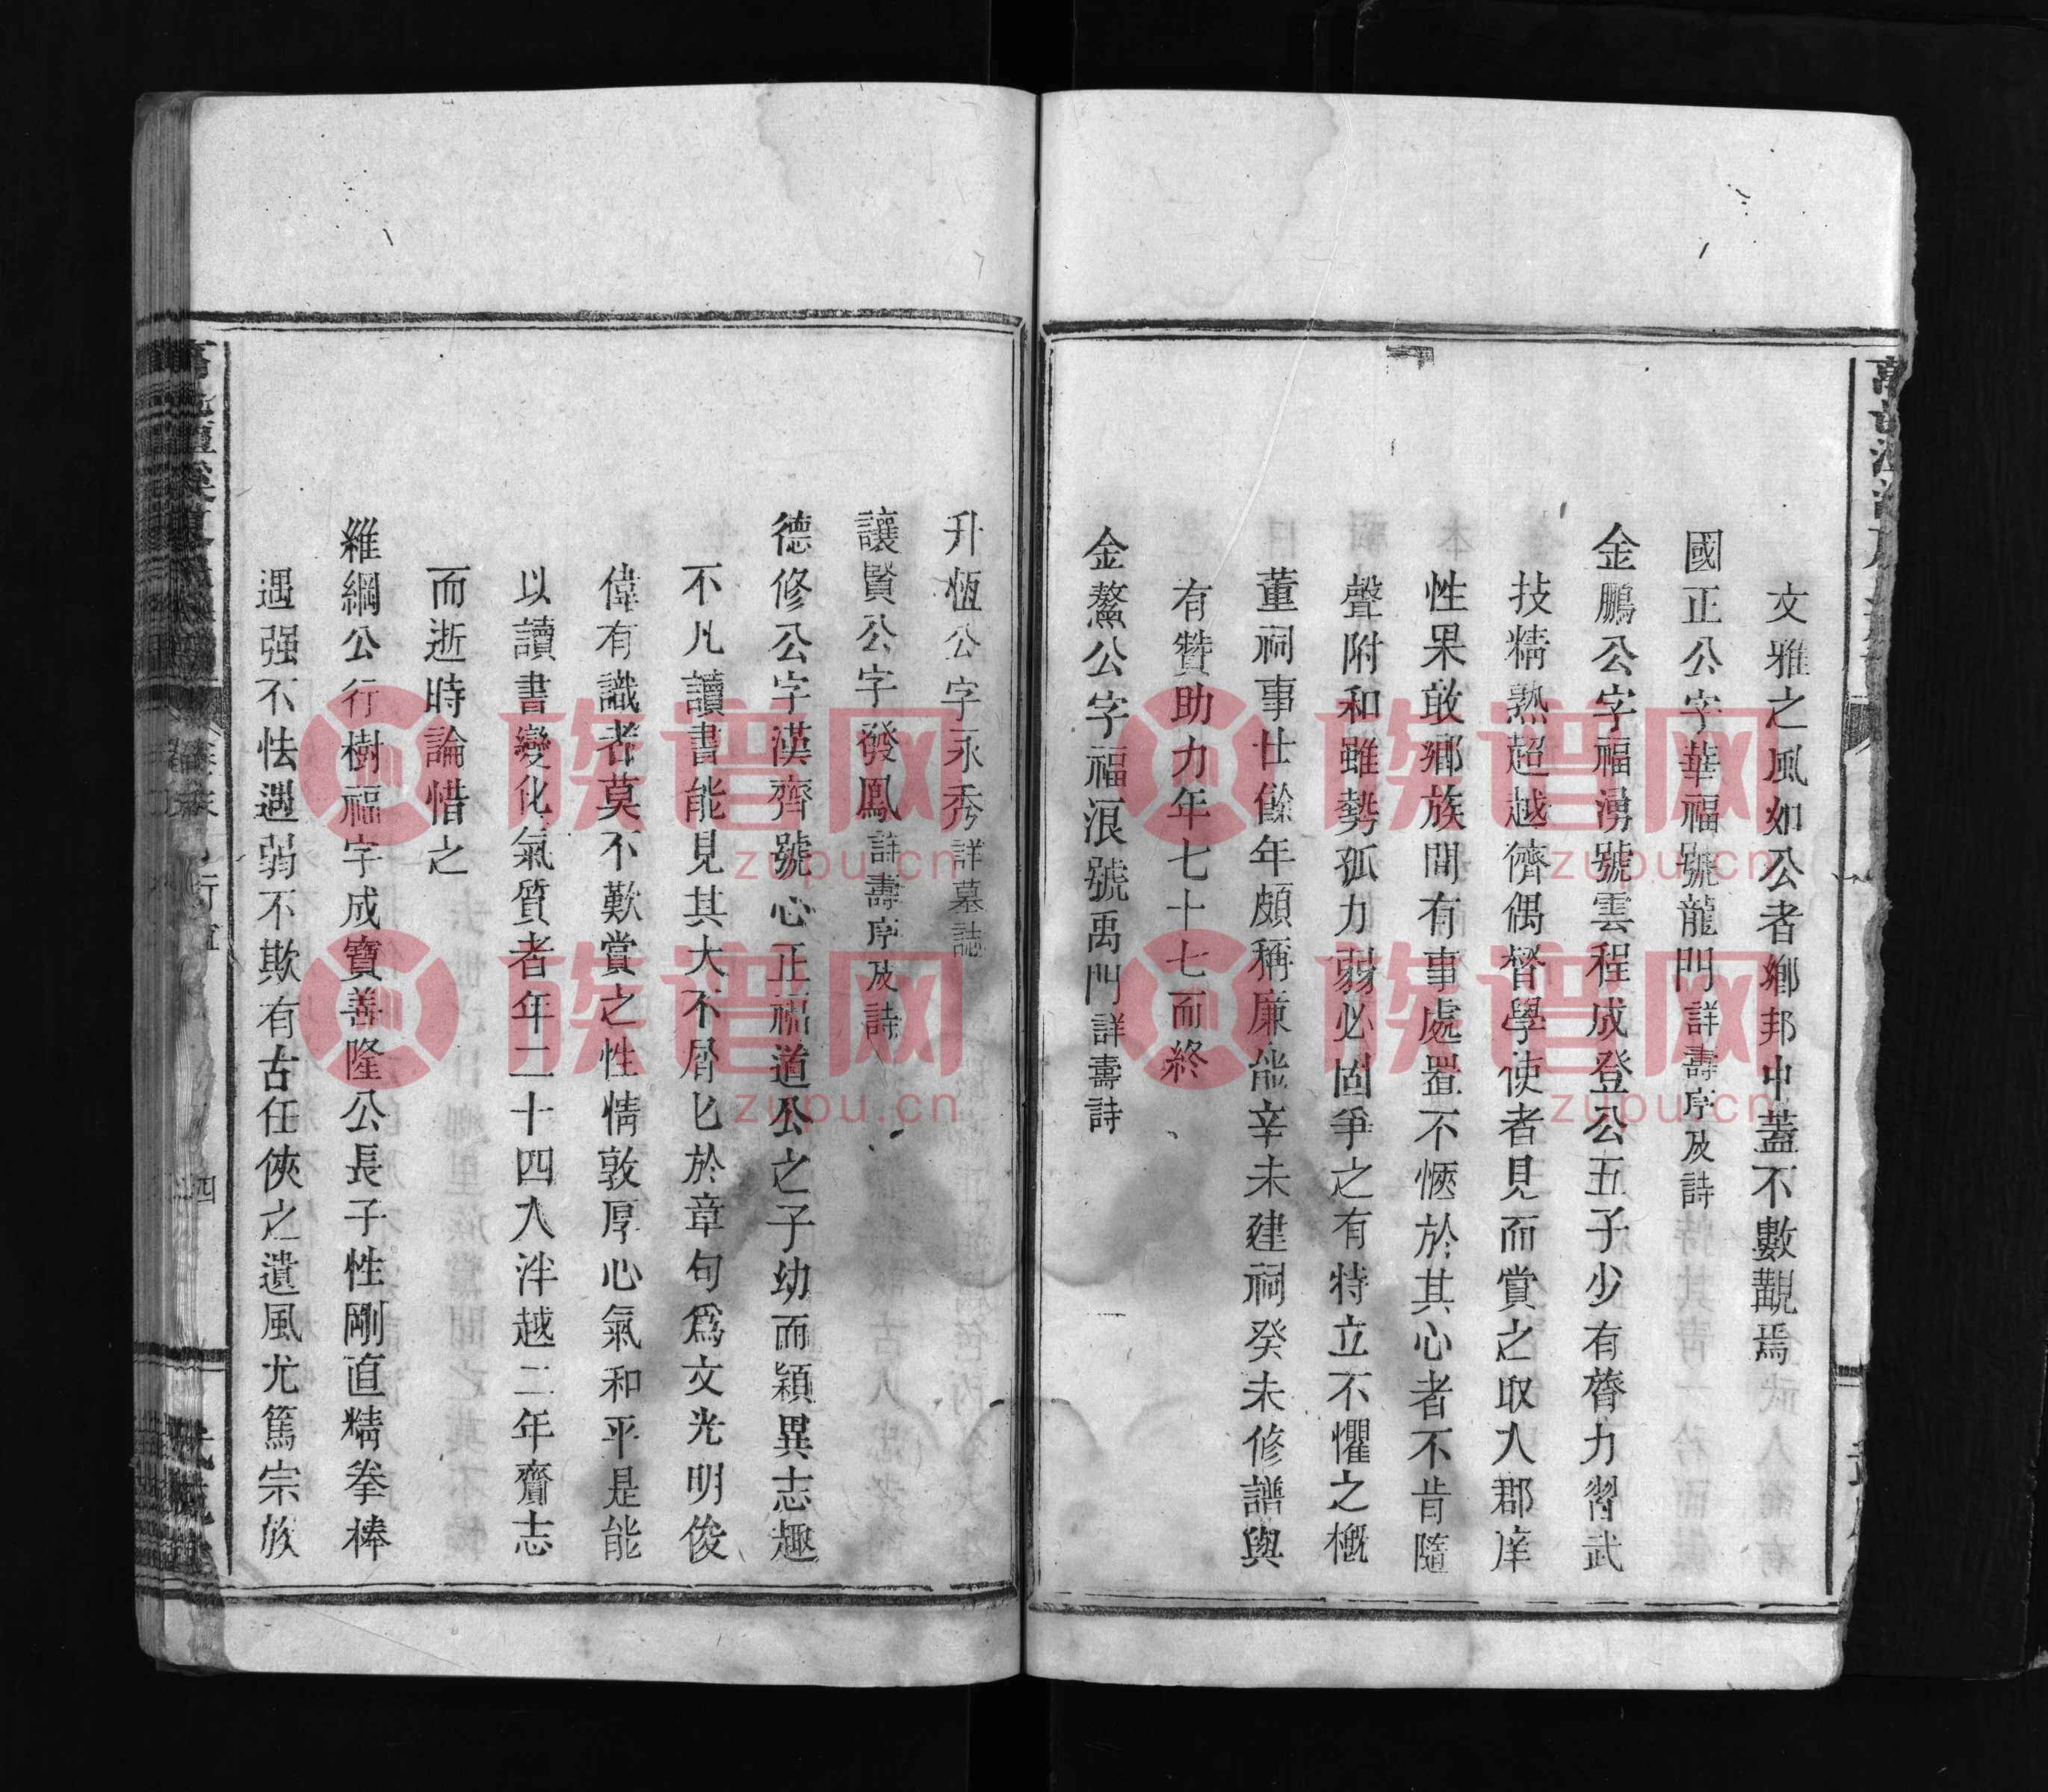 文雅之風如公者鄉邦中蓋不數覯焉
國正公字華福號龍門詳壽序及詩
金鵬公字福湧號雲程成登公五子少有膂力習武
技精熟超越儕偶督學使者見而賞之取入郡庠
性果敢鄉族間有事處置不愜於其心者不肯隨
聲附和雖勢孤力弱必固爭之有特立不懼之概
董祠事廿餘年頗稱廉能辛未建祠癸未修譜與
有贊助力年七十七而終
金鰲公字福浪號禹門詳壽詩
升恆公字永秀詳墓誌
讓賢公字發鳳詳壽序及詩
德修公字漢齊號心正福道公之子幼而穎異志趣
不凡讀書能見其大不屑匕於章句爲文光明俊
偉有識者莫不歎賞之性情敦厚心氣和平是能
以讀書變化氣質者年二十四入泮越二年齎志
而逝時論惜之
維綱公行樹福字成寶善隆公長子性剛直精拳棒
遇强不怯遇弱不欺有古任俠之遺風尤篤宗族
行宜
四
族谱网
zupu.cn
族谱网
zupu.cn
族谱网
zupu.cn
族谱网
zupu.cn